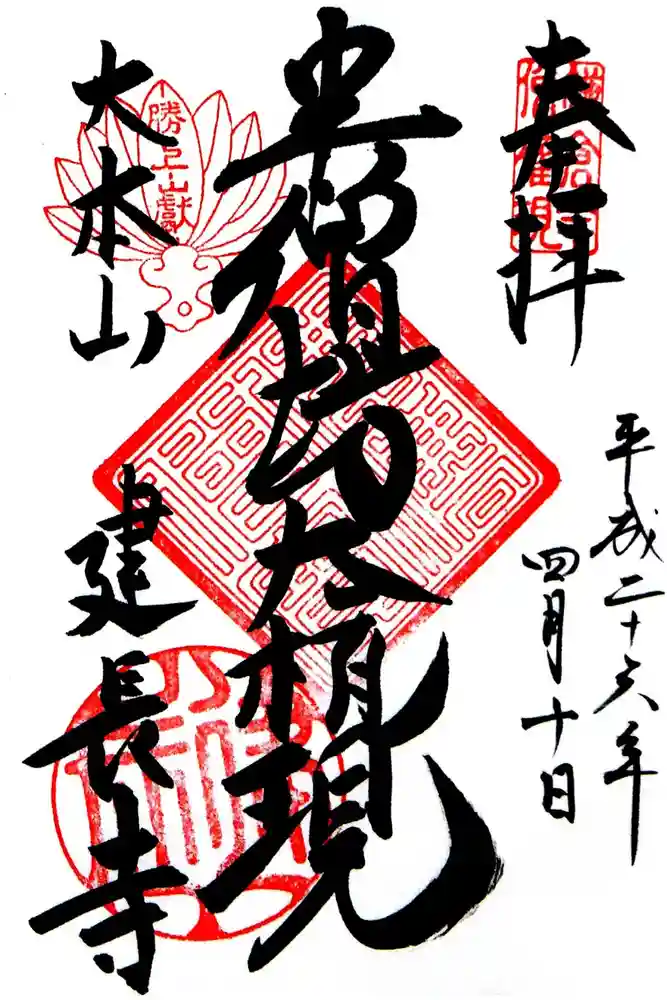 奉拝
平成二十六年
四月十日
半僧坊大権現
勝上巘
大本山
建長寺